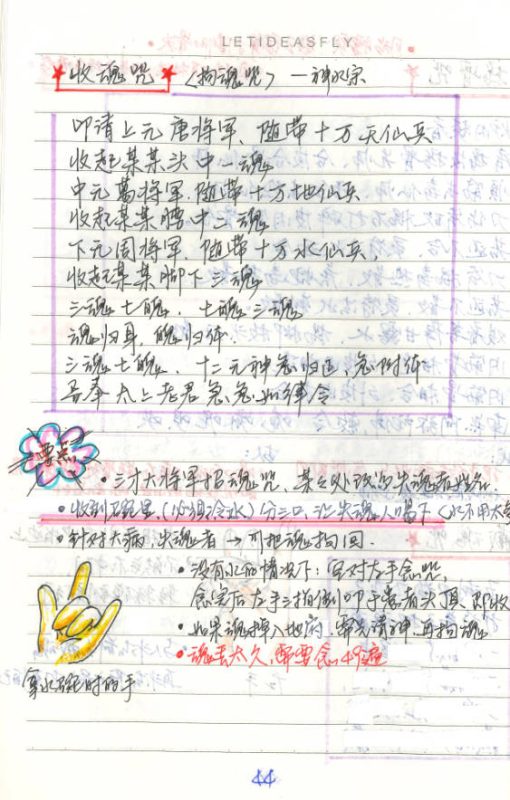 LETIDEASFLY
★收魂咒★〈拘魂咒〉—神水宗
叩请上元唐将军、随带十万天仙兵
收起某某头中二魂
中元葛将军、随带十万地仙兵
收起某某腰中二魂
下元周将军、随带十万水仙兵,
收起某某脚下三魂
三魂七魄、七魄三魂
魂归身,魄归体.
三魂七魄、十二元神急归还,急附体
吾奉太上老君急急如律令
要点
•三才大将军招魂咒、某某处改为失魂者姓名.
•收到碗里(必须冷水)分三口,让失魂人喝下
•针对大病,失魂者→可把魂拘回.
•没有水的情况下:定对左手念咒,
念完后左手三拍
叩于患者头顶,即收
•如果魂掉入地府,需先请神,再拘魂
•魂丢太久,需要念49遍
拿水碗时的手
44